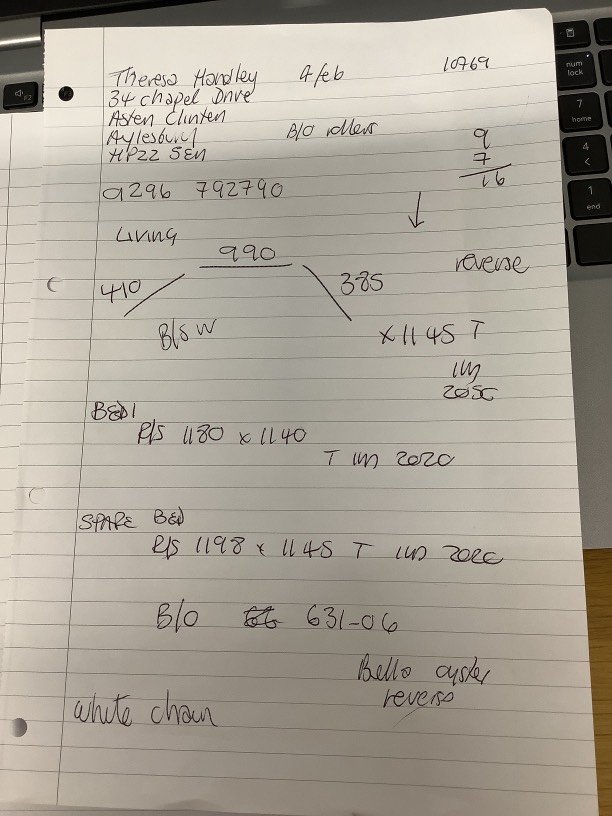 Theresa Handley 4 feb 10769
34 chapel Drive
Asten Clinten
Aylesbury B/O rollers
HP22 5EN
9
7
16
0296 792790
Living
990 reverse
410 385
B/S W x 1145 T
um
2050
BED1
R/S 1180 x 1140
T um 2020
SPARE BED
R/S 1198 x 1145 T um 2020
B/O 631-06
Bello oyster
reverso
white chain